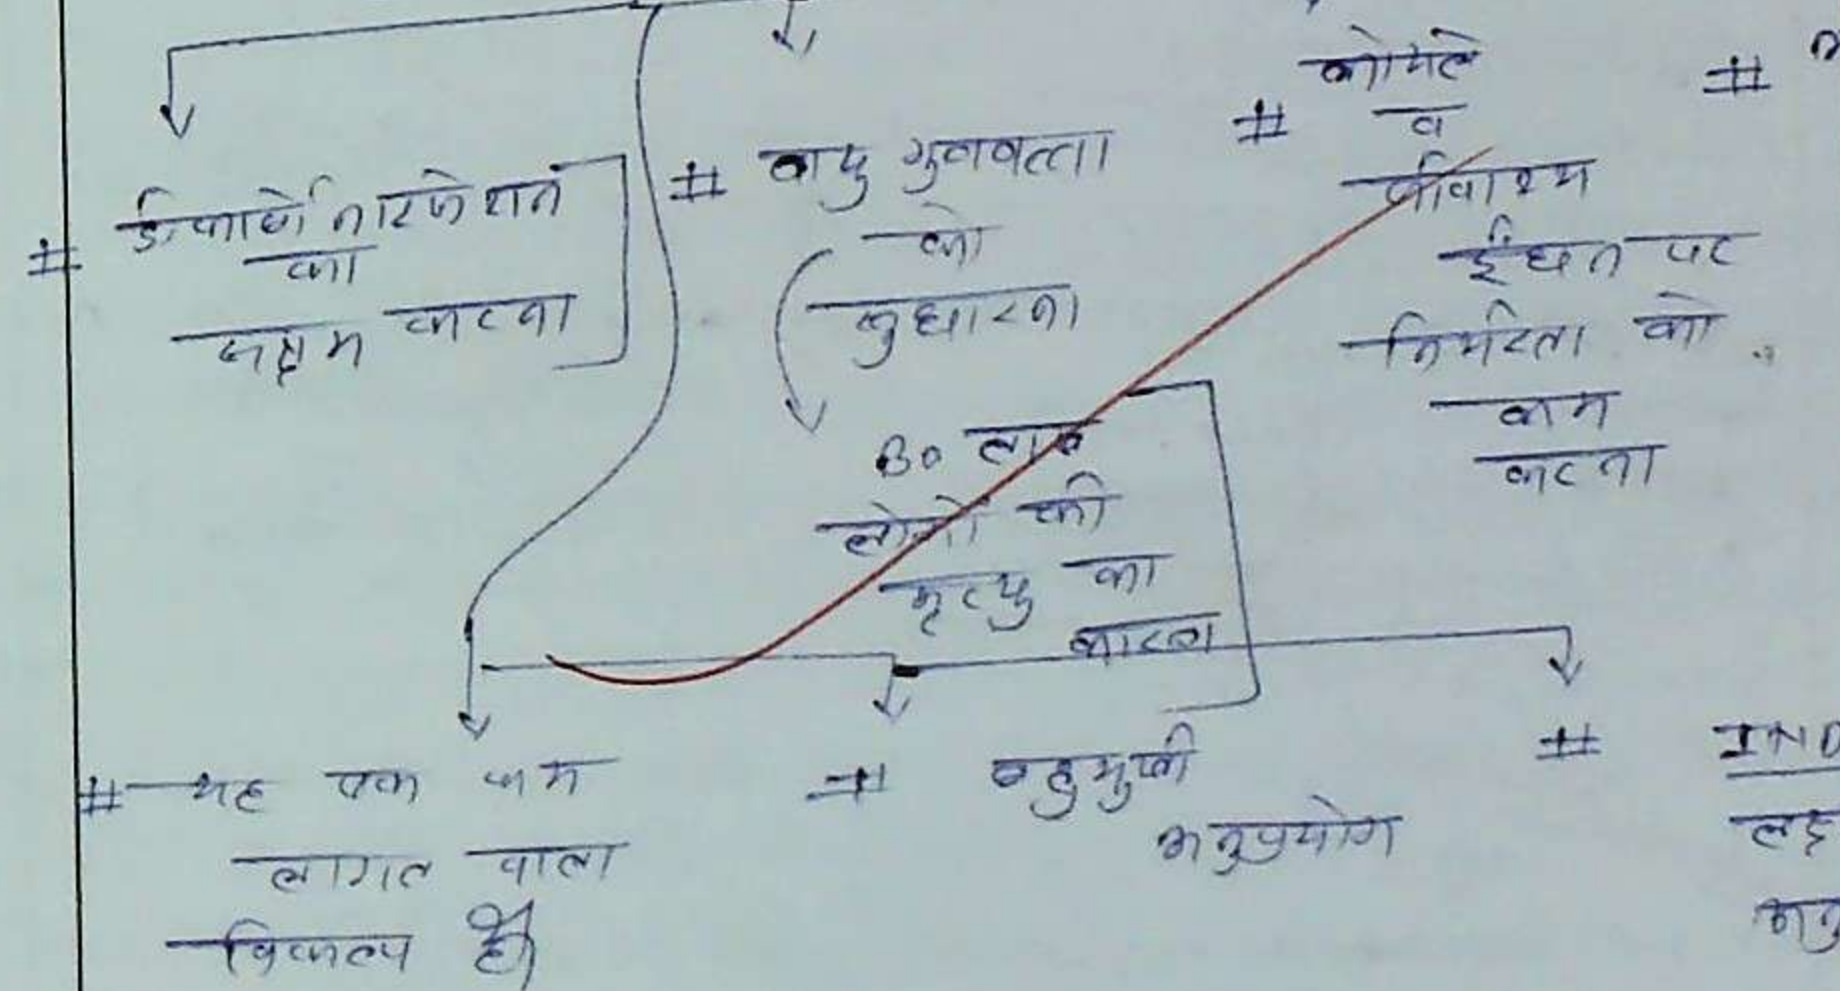 # डीकार्बोनाइजेशन
का
सक्षम करना
# वायु गुणवत्ता
को
सुधारना
30 लाख
लोगों की
मृत्यु का
कारण
# कोयले
व
जीवाश्म
ईंधन पर
निर्भरता को
कम
करना
#
# यह एक कम
लागत वाला
विकल्प है
# बहुमुखी
अनुप्रयोग
# IND
लक्ष
अनु